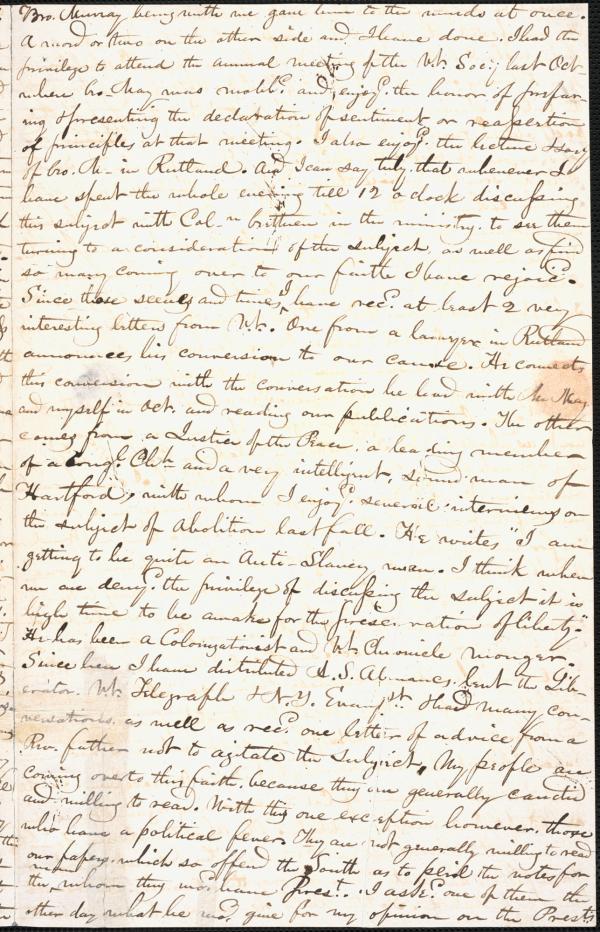 Bro. Murray being with me gave him to the winds at once.
A word or two on the other side and I have done. I had the
privilege to attend the annual meeting of the Vt. Socy. last Oct.
when bro. May was mobbd. and enjoyd. the honor of prepar-
ing & presenting the declaration of sentiment or reassertion
of principles at that meeting. I also enjoyd. the lecture
of bro. M- in Rutland. And I can say truly that whenever I
have spent the whole evening till 12 o clock discussing
this subject with Col-n brethren in the ministry, to see them
turning to a consideration of the subject, as well as find
so many coming over to our faith I have rejoicd.
Since those scenes and times, I have recd. at least 2 very
interesting letters from Vt. One from a lawyer in Rutland
announces his conversion to our cause. He connects
this conversion with the conversation he had with Mr May
and myself in Oct. and reading our publications. The other
comes from a Justice of the Peace, a leading member
of a Congl. Chh. and a very intelligent, sound man of
Hartford, with whom I enjoyd. several interviews on
the subject of Abolition last fall. He writes "I am
getting to be quite an Anti-Slavery man. I think when
we are denyd. the privilege of discussing the subject it is
high time to be awake for the preservation of liberty."
He has been a Colonizationist and Vt. Chronicle monger.
Since here I have distributed A.S. Almanacs, lent the Lib-
erator, Vt. Telegraph & N.Y. Evangst. Had many con-
versations, as well as recd. one letter of advice from a
Rev. father not to agitate the subject, My people are
coming over to this faith, because they are generally candid
and willing to read. With this one exception however, those
who have a political fever. They are not generally willing to read
our papers, which so offend the South as to peril the votes for
the whom they wd. have Prest. I askd. one of them the
other day what he wd. give for my opinion on the Prests